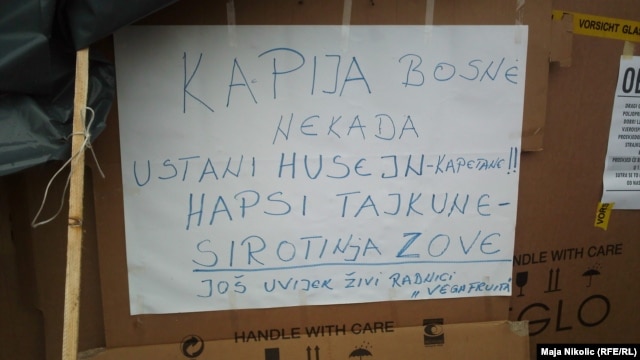 KAPIJA BOSNE
NEKADA
USTANI HUSEJN-KAPETANE!!
HAPSI TAJKUNE-
SIROTINJA ZOVE
JOŠ UVIJEK ŽIVI RADNICI
"VEGAFRUITA"
VORSICHT GLAS
VORS
HANDLE WITH CARE
NDLE WITH CARE
GLO
Maja Nikolic (RFE/RL)